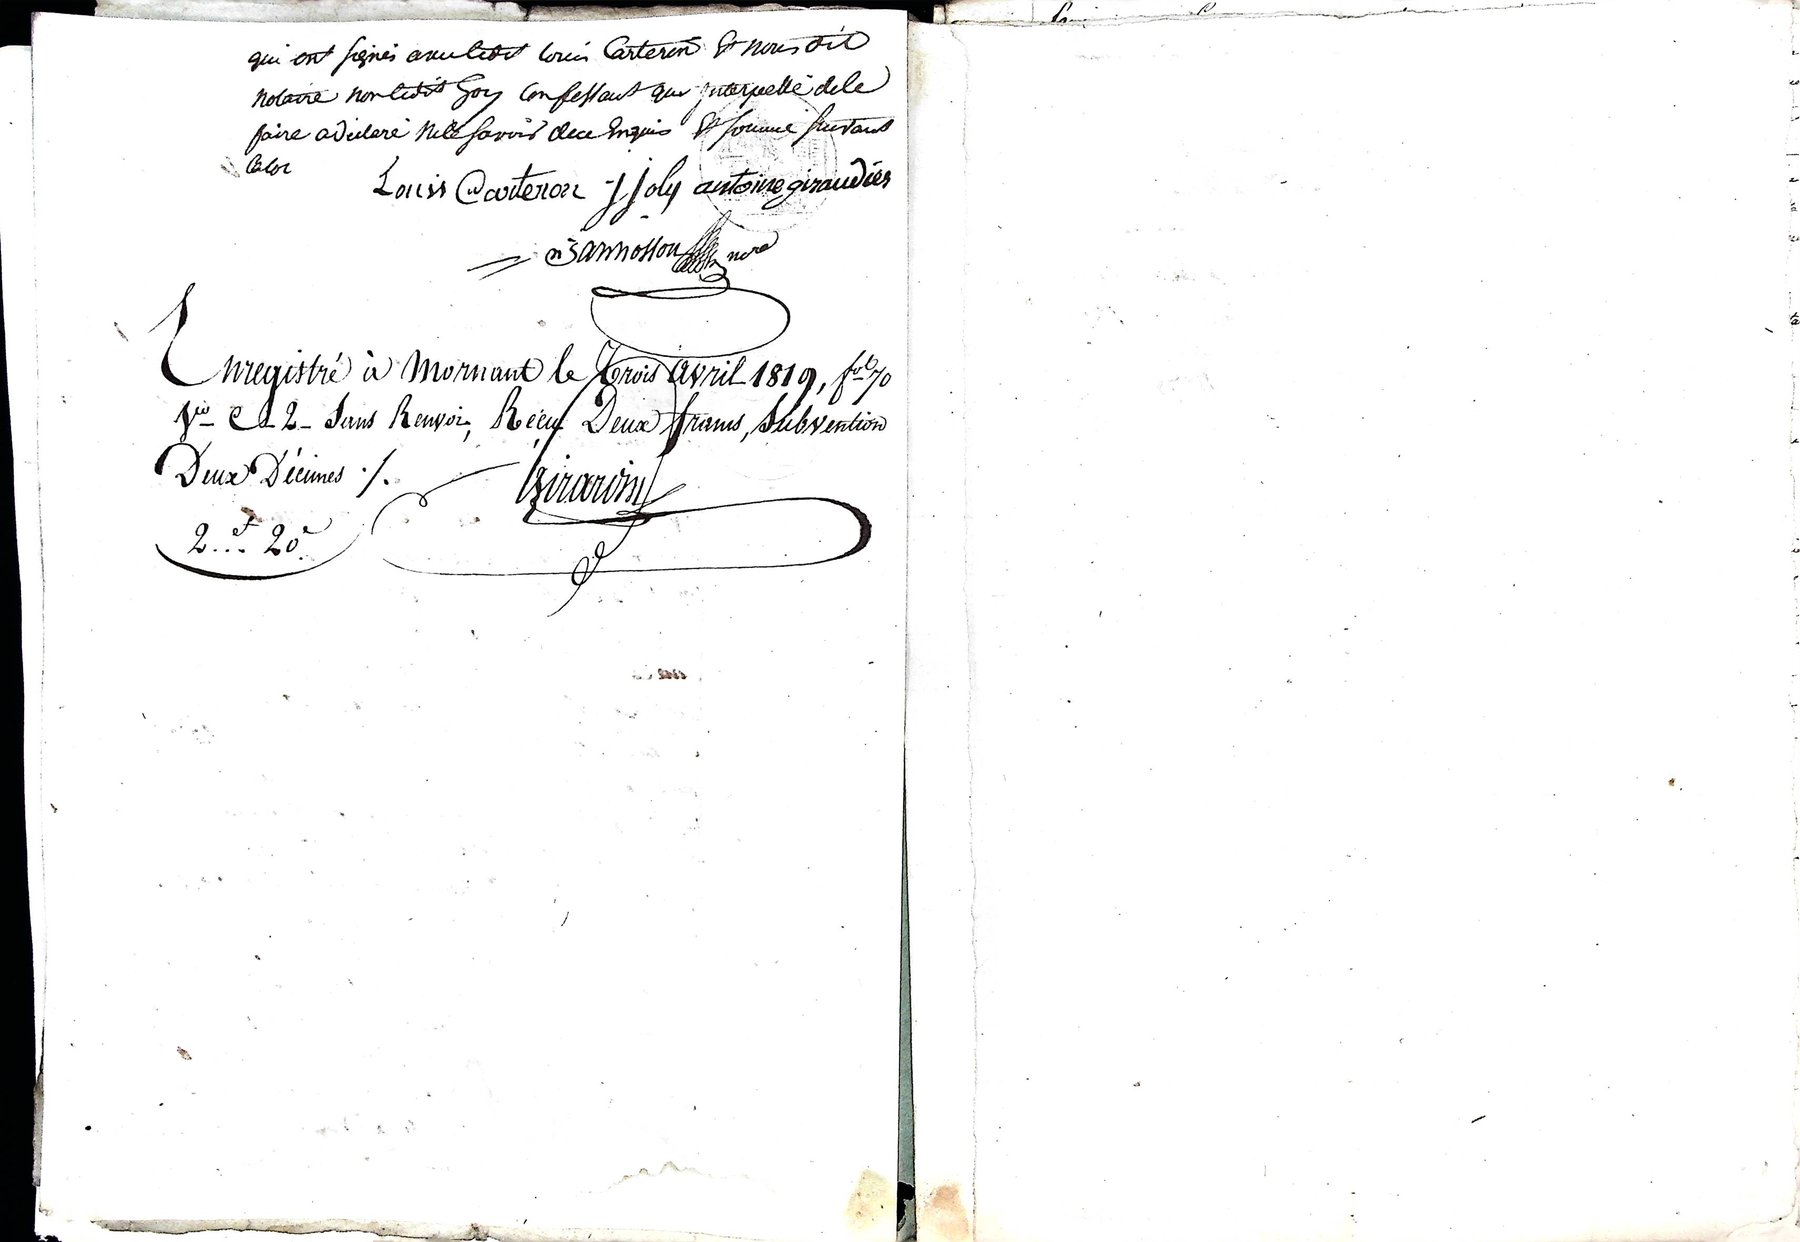 qui ont signés avec ledit Louis Carteron Et nous dit
notaire non ledit Goy Confessant qui Interpellé de le
faire a déclaré ne le savoir de ce Enquis Et sommé suivant
la loi
Louis Carteron J Joly antoine giraudier
nore
Enregistré à Mornant le Trois Avril 1819, fol 70
Vo C 2 Sans Renvoi, Reçu Deux francs, Subvention
Deux Décimes ./.
Girardin
2.f 20c